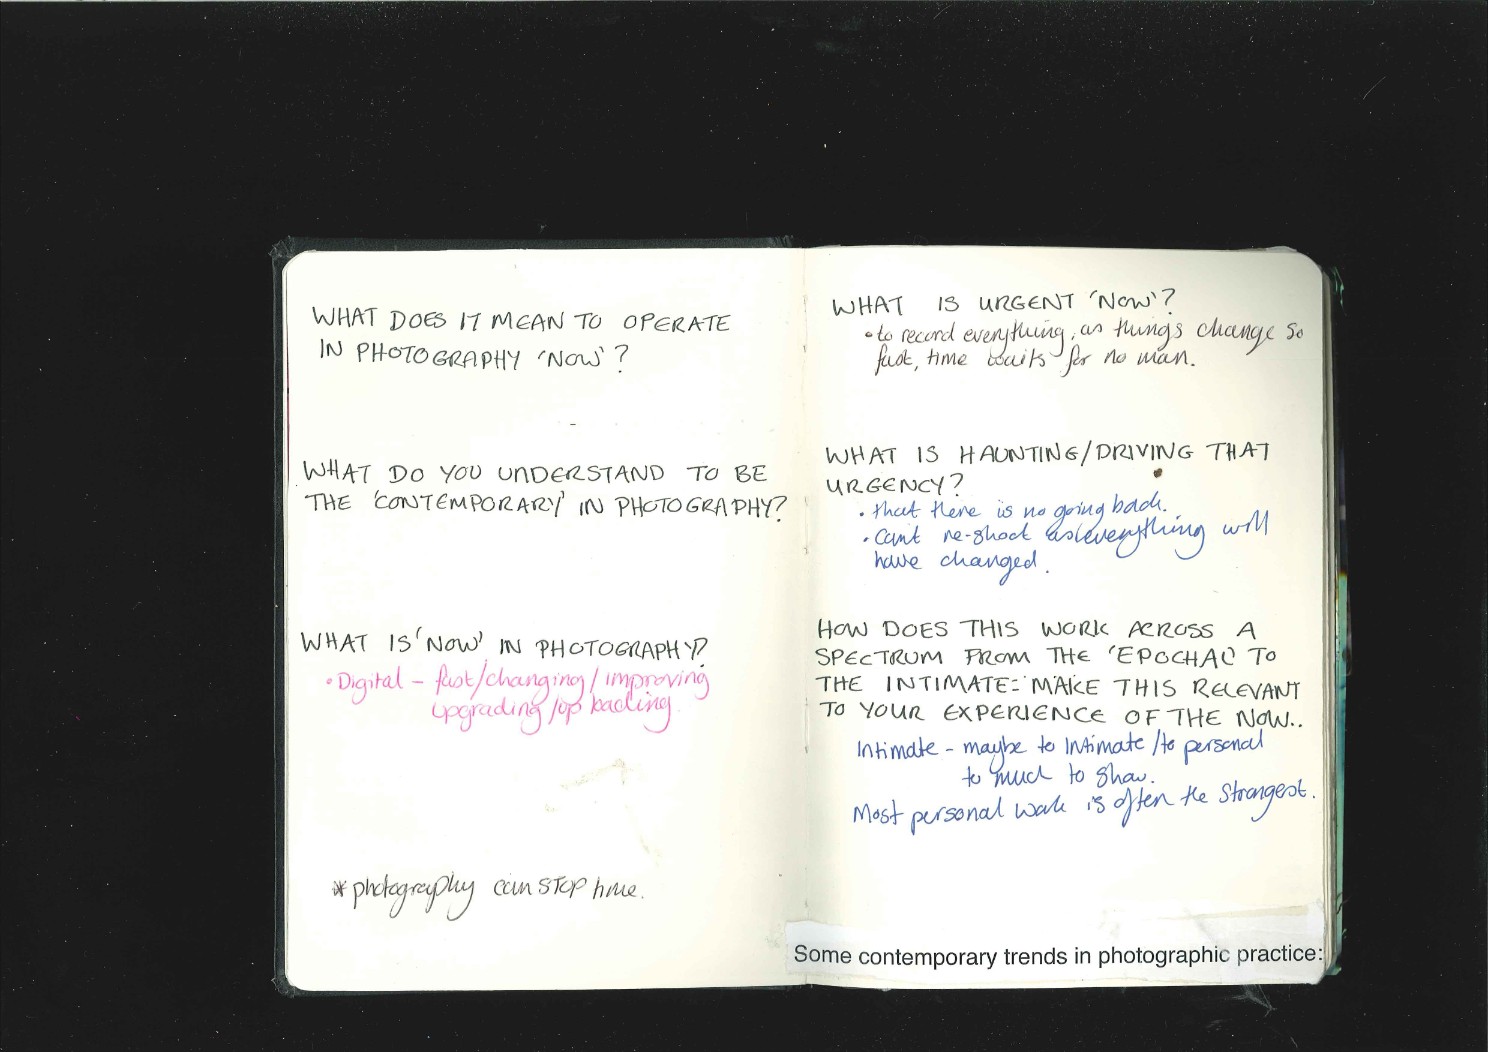 WHAT DOES IT MEAN TO OPERATE
IN PHOTOGRAPHY 'NOW'?
WHAT DO YOU UNDERSTAND TO BE
THE 'CONTEMPORARY' IN PHOTOGRAPHY?
WHAT IS 'NOW' IN PHOTOGRAPHY?
• Digital - fast/changing/improving
upgrading/up backing.
* photography can STOP time.
WHAT IS URGENT 'NOW'?
• to record everything, as things change so
fast, time waits for no man.
WHAT IS HAUNTING/DRIVING THAT
URGENCY?
• that there is no going back.
• Can't re-shoot as everything will
have changed.
HOW DOES THIS WORK ACROSS A
SPECTRUM FROM THE 'EPOCHAL' TO
THE INTIMATE: MAKE THIS RELEVANT
TO YOUR EXPERIENCE OF THE NOW..
Intimate - maybe to Intimate/to personal
to much to show.
Most personal work is often the Strongest.
Some contemporary trends in photographic practice: